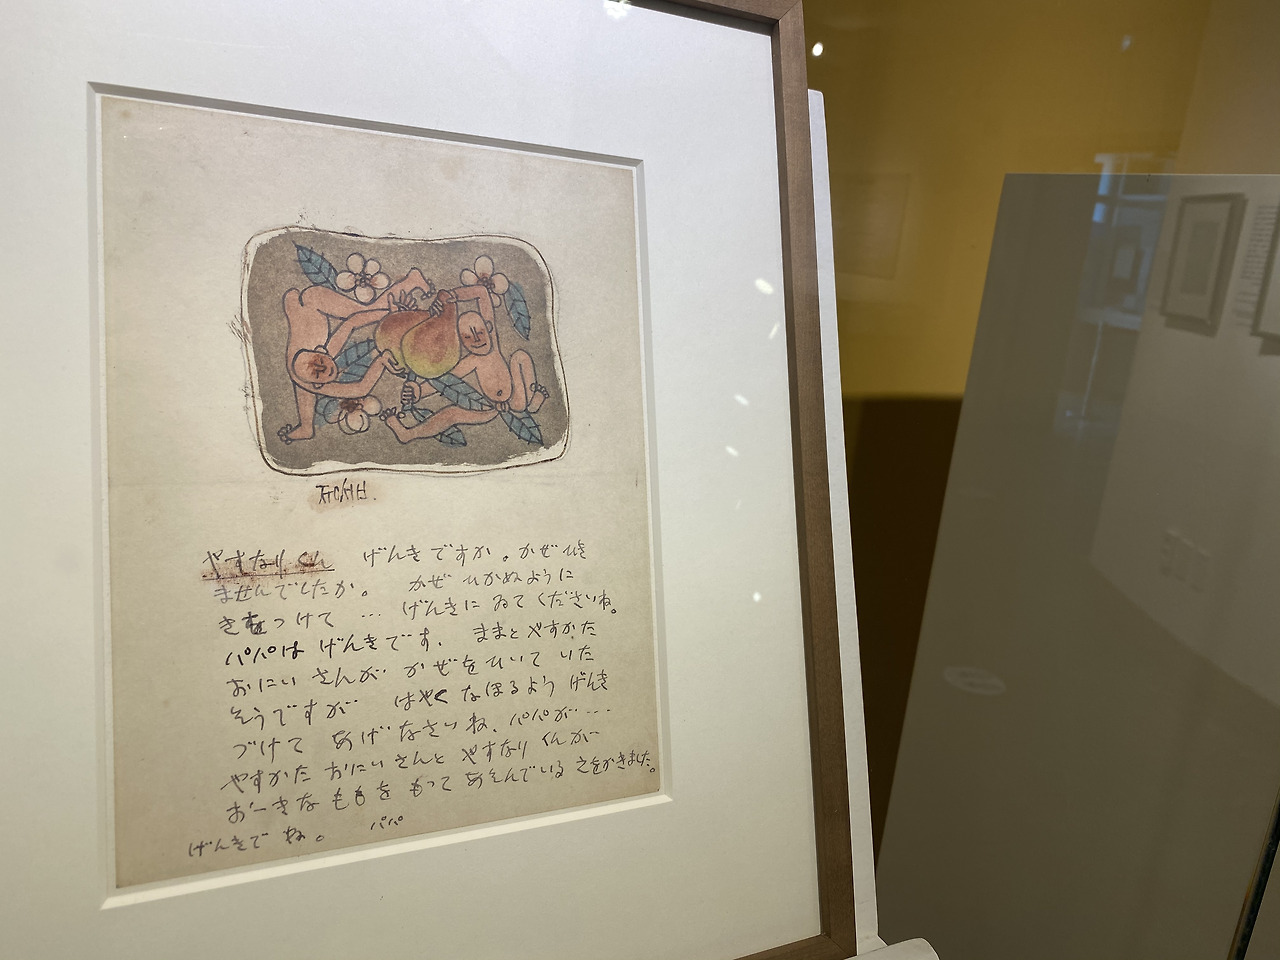 ㅈㅜㅇㅅㅓㅂ.
やすなりくん げんきですか。かぜひき
ませんでしたか。 かぜ ひかぬように
きをつけて … げんきに ゐてくださいね。
パパは げんきです. ままと やすかた
おにいさんが かぜをひいて いた
そうですが はやく なほるよう げんき
づけて あげなさいね、パパが…
やすかた おにいさんと やすなり くんが
おーきな ももを もって あそんでいる えをかきました。
げんきで ね。 パパ